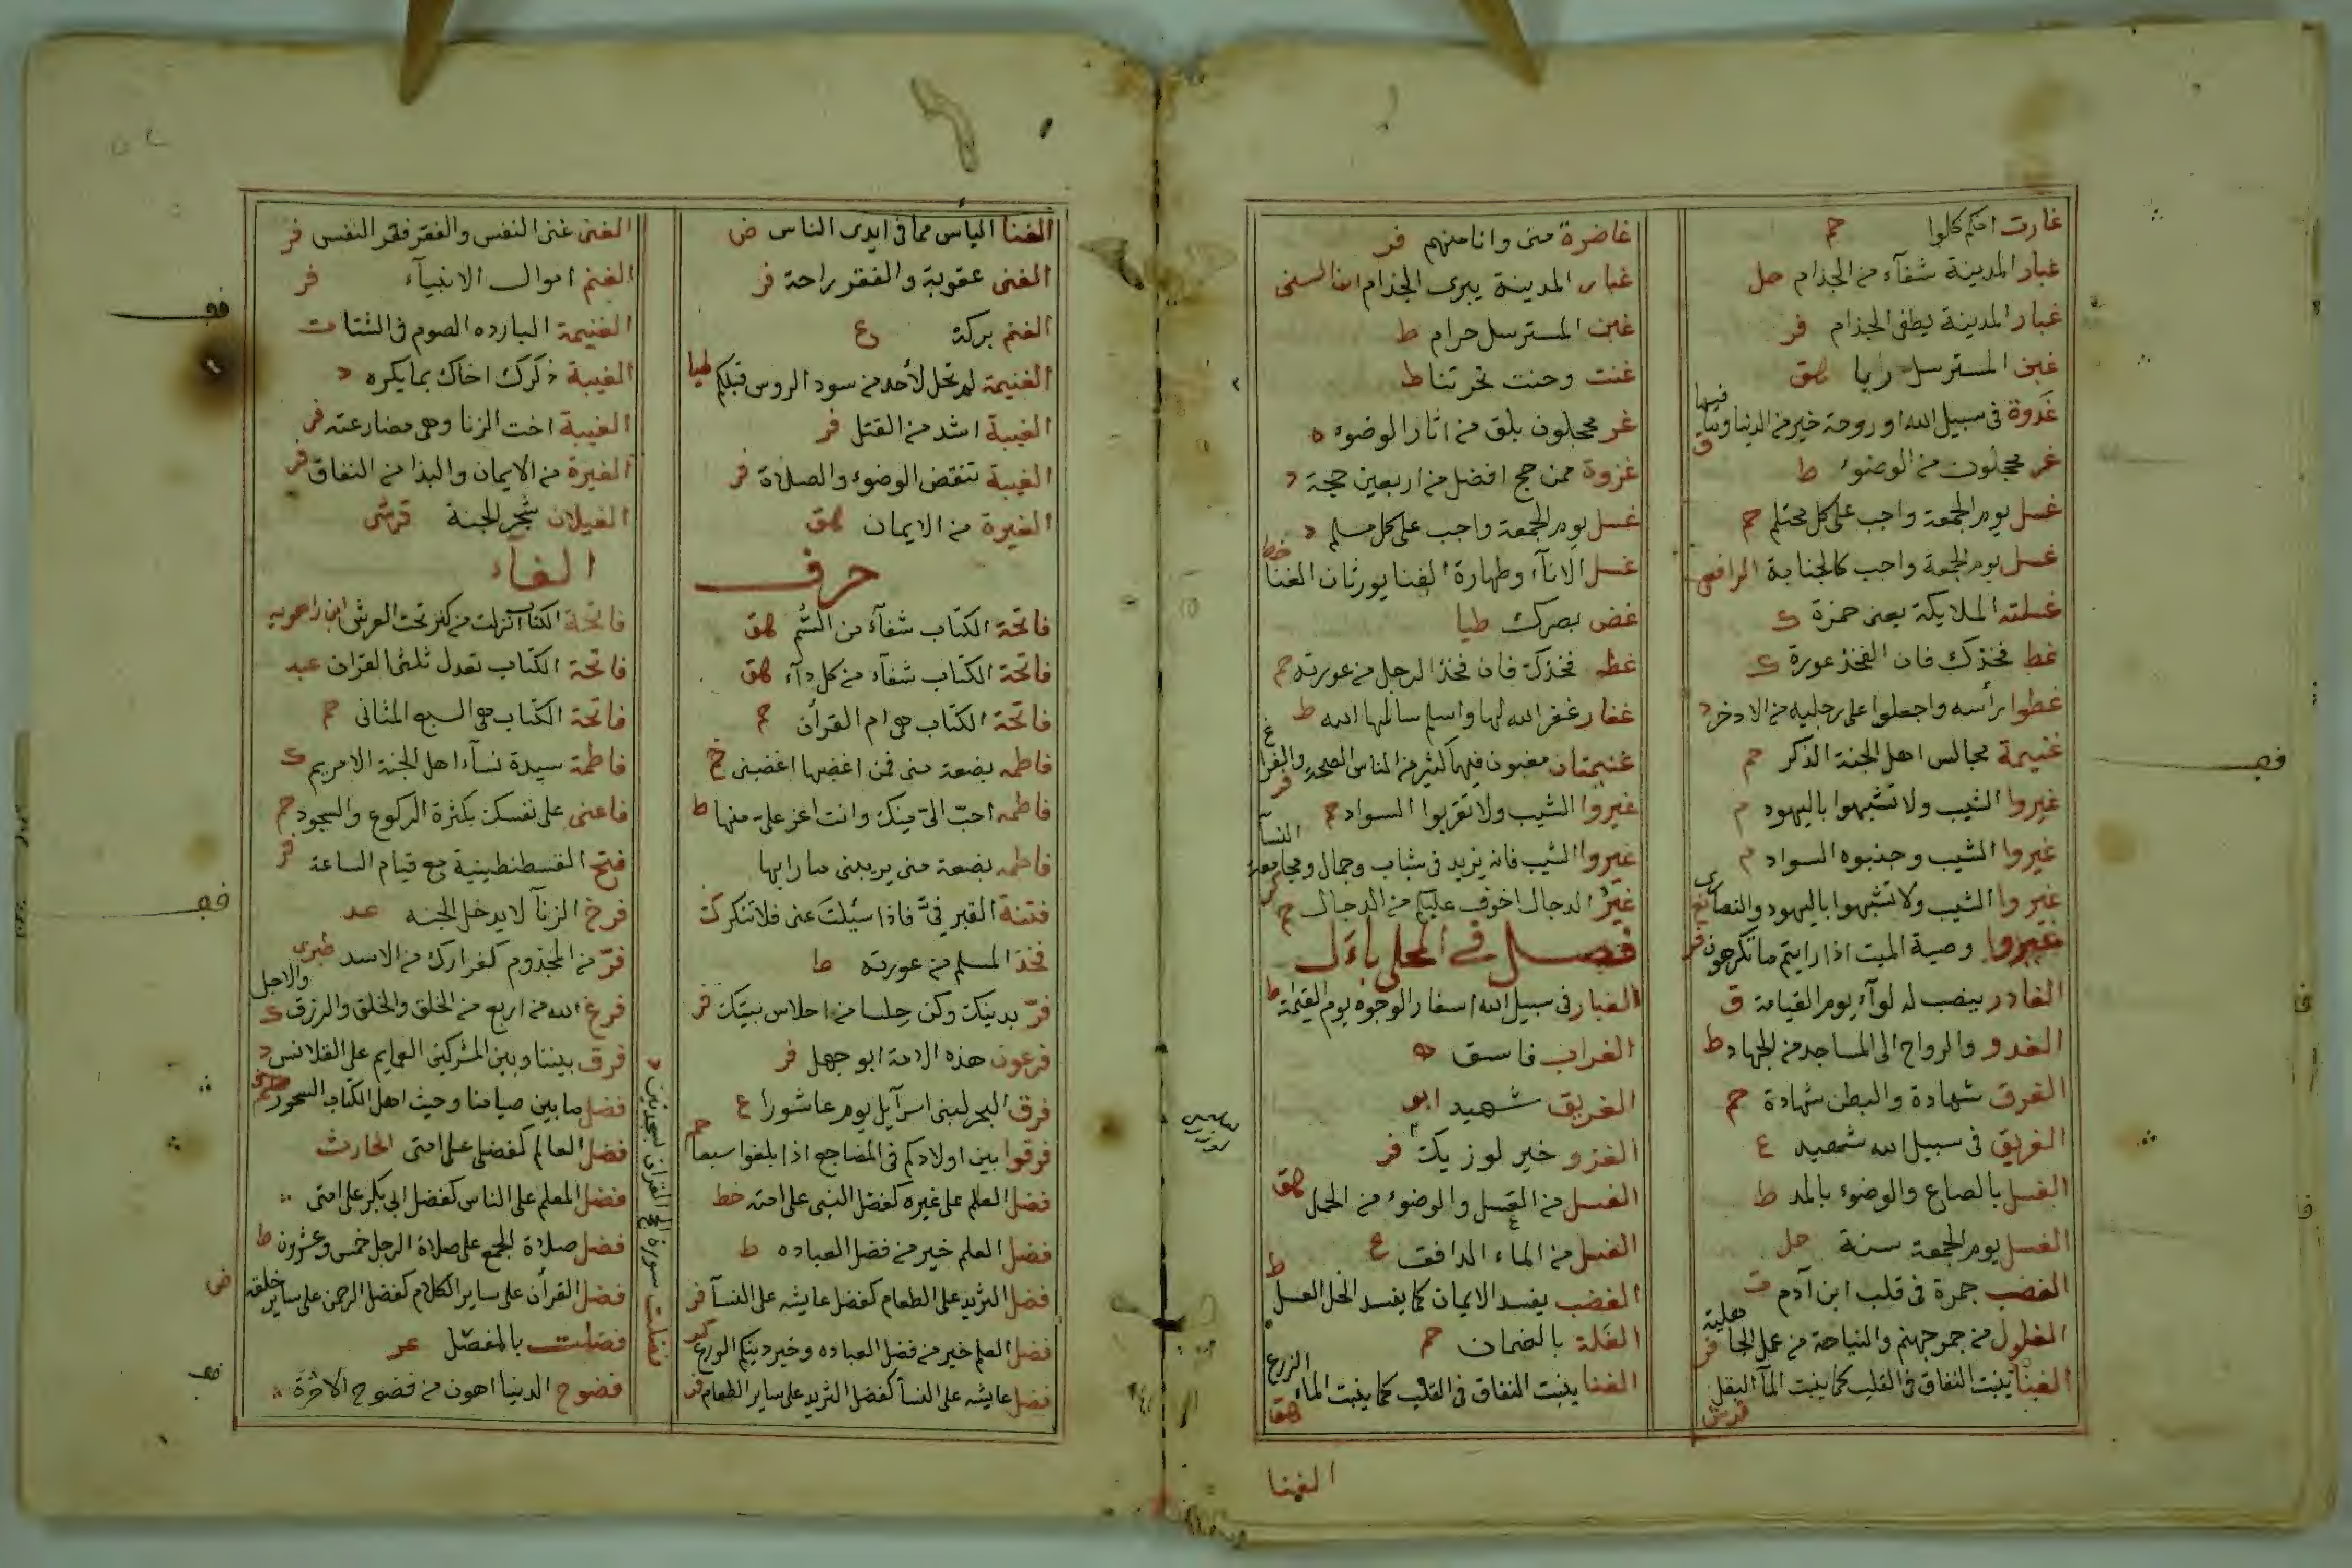 غارت امكم كلوا حم
غبار المدينة شفآء من الجذام حل
غبار المدينة يطفى الجذام فر
غبن المسترسل ربا هق
غدوة فى سبيل الله او روحة خير من الدنيا وما فيها ق
غر محجلون من الوضوء ط
غسل يوم الجمعة واجب على كل محتلم حم
غسل يوم الجمعة واجب كالجنابة الرافعى
غسلته الملايكة يعنى حمزة ك
غط فخذك فان الفخذ عورة ك
غطوا برأسه واجعلوا على رجليه من الاذخر د
غنيمة مجالس اهل الجنة الذكر حم
غيروا الشيب ولا تشبهوا باليهود م
غيروا الشيب وجنبوه السواد م
غيروا الشيب ولا تشبهوا باليهود والنصارى
غيروا وصية الميت اذا رايتم ما تكرهون فر
الغادر ينصب له لوآء يوم القيامة ق
الغدو والرواح الى المساجد من الجهاد ط
الغرق شهادة والبطن شهادة حم
الغريق فى سبيل الله شهيد ع
الغسل بالصاع والوضوء بالمد ط
الغسل يوم الجمعة سنة حل
الغضب جمرة فى قلب ابن آدم ت
الغلول من جمر جهنم والنياحة من عمل الجاهلية فر
الغنا ينبت النفاق فى القلب كما ينبت المآ البقل
غاضرة منى وانا منهم فر
غبار المدينة يبرى الجذام ابن السنى
غبن المسترسل حرام ط
غنت وحنت ط
غر محجلون بلق من اثار الوضوء ه
غزوة ممن حج افضل من اربعين حجة د
غسل يوم الجمعة واجب على كل مسلم د
غسل الانآء وطهارة الفنا يورثان الغنا خط
غض بصرك طيا
غط فخذك فان فخذ الرجل من عورته حم
غفار غفر الله لها واسلم سالمها الله ط
غنيمتان مغبون فيهما كثير من الناس الصحة والفراغ فر
غيروا الشيب ولا تقربوا السواد حم
غيروا الشيب فانه يزيد فى شباب وجمال ومجامعة النسآ
غير الدجال اخوف عليكم من الدجال حم
فصل فى المحلى باءل
الغبار فى سبيل الله اسفار الوجوه يوم القيمة ط
الغراب فاسق ه
الغريق شهيد ابو
الغزو خير لوزيك فر
الغسل من الغسل والوضوء من الحمل هق
الغسل من الماء الدافق ع
الغضب يفسد الايمان كما يفسد الخل العسل ط
الغلة بالضمان حم
الغنا ينبت النفاق فى القلب كما ينبت الماء الزرع هق
الغنا
الغنا الياس مما فى ايدى الناس ض
الغنى عقوبة والفقر راحة فر
الغنم بركة ع
الغنيمة لم تحل لأحد من سود الروس قبلكم طيا
الغيبة اشد من القتل فر
الغيبة تنقض الوضوء والصلاة فر
الغيرة من الايمان هق
حرف
فاتحة الكتاب شفآء من السم هق
فاتحة الكتاب شفآء من كل دآء هق
فاتحة الكتاب هى ام القرآن حم
فاطمه بضعة منى فمن اغضبها اغضبنى خ
فاطمه احب الىّ منك وانت اعز علىّ منها ط
فاطمه بضعة منى يريبنى ما رابها
فتنة القبر فىّ فاذا سئلت عنى فلا تنكر ك
فخذ المسلم من عورته ط
فرّ بدينك وكن حلسا من احلاس بيتك فر
فرعون هذه الامة ابو جهل فر
فرق البحر لبنى اسرآيل يوم عاشورا ع
فرقوا بين اولادكم فى المضاجع اذا بلغوا سبعا حم
فضل العلم على غيره كفضل النبى على امته خط
فضل العلم خير من فضل العباده ط
فضل الثريد على الطعام كفضل عايشه على النسآ فر
فضل العلم خير من فضل العباده وخير دينكم الورع
فضل عايشه على النسآ كفضل الثريد على ساير الطعام فر
الغنى غنى النفس والفقر فقر النفس فر
الغنم اموال الانبيآء فر
الغنيمة البارده الصوم فى الشتا ت
الغيبة ذكرك اخاك بما يكره د
الغيبة اخت الزنا وهى مضارعته فر
الغيرة من الايمان والبذا من النفاق فر
الغيلان شجر الجنة قرشى
الفآء
فاتحة الكتاب انزلت من كنز تحت العرش ابن راهويه
فاتحة الكتاب تعدل ثلثى القران عبد
فاتحة الكتاب هى السبع المثانى حم
فاطمة سيدة نسآء اهل الجنة الا مريم ك
فاعنى على نفسك بكثرة الركوع والسجود حم
فتح القسطنطينية مع قيام الساعة فر
فرخ الزنآ لا يدخل الجنه عد
فرّ من المجذوم كفرارك من الاسد طبرى
فرغ الله من اربع من الخلق والخلق والرزق والاجل ك
فرق بيننا وبين المشركين العمايم على القلانس د
فضل ما بين صيامنا وحيث اهل الكتاب السحور
فضل العالم كفضلى على امتى الحارث
فضل المعلم على الناس كفضل ابى بكر على امتى
فضل صلاة الجمع على صلاة الرجل خمس وعشرون ط
فضل القرآن على ساير الكلام كفضل الرحمن على ساير خلقه
فضلت بالمفصل عر
فضوح الدنيا اهون من فضوح الآخرة
فضلت سورة الحج القران بسجدتين د